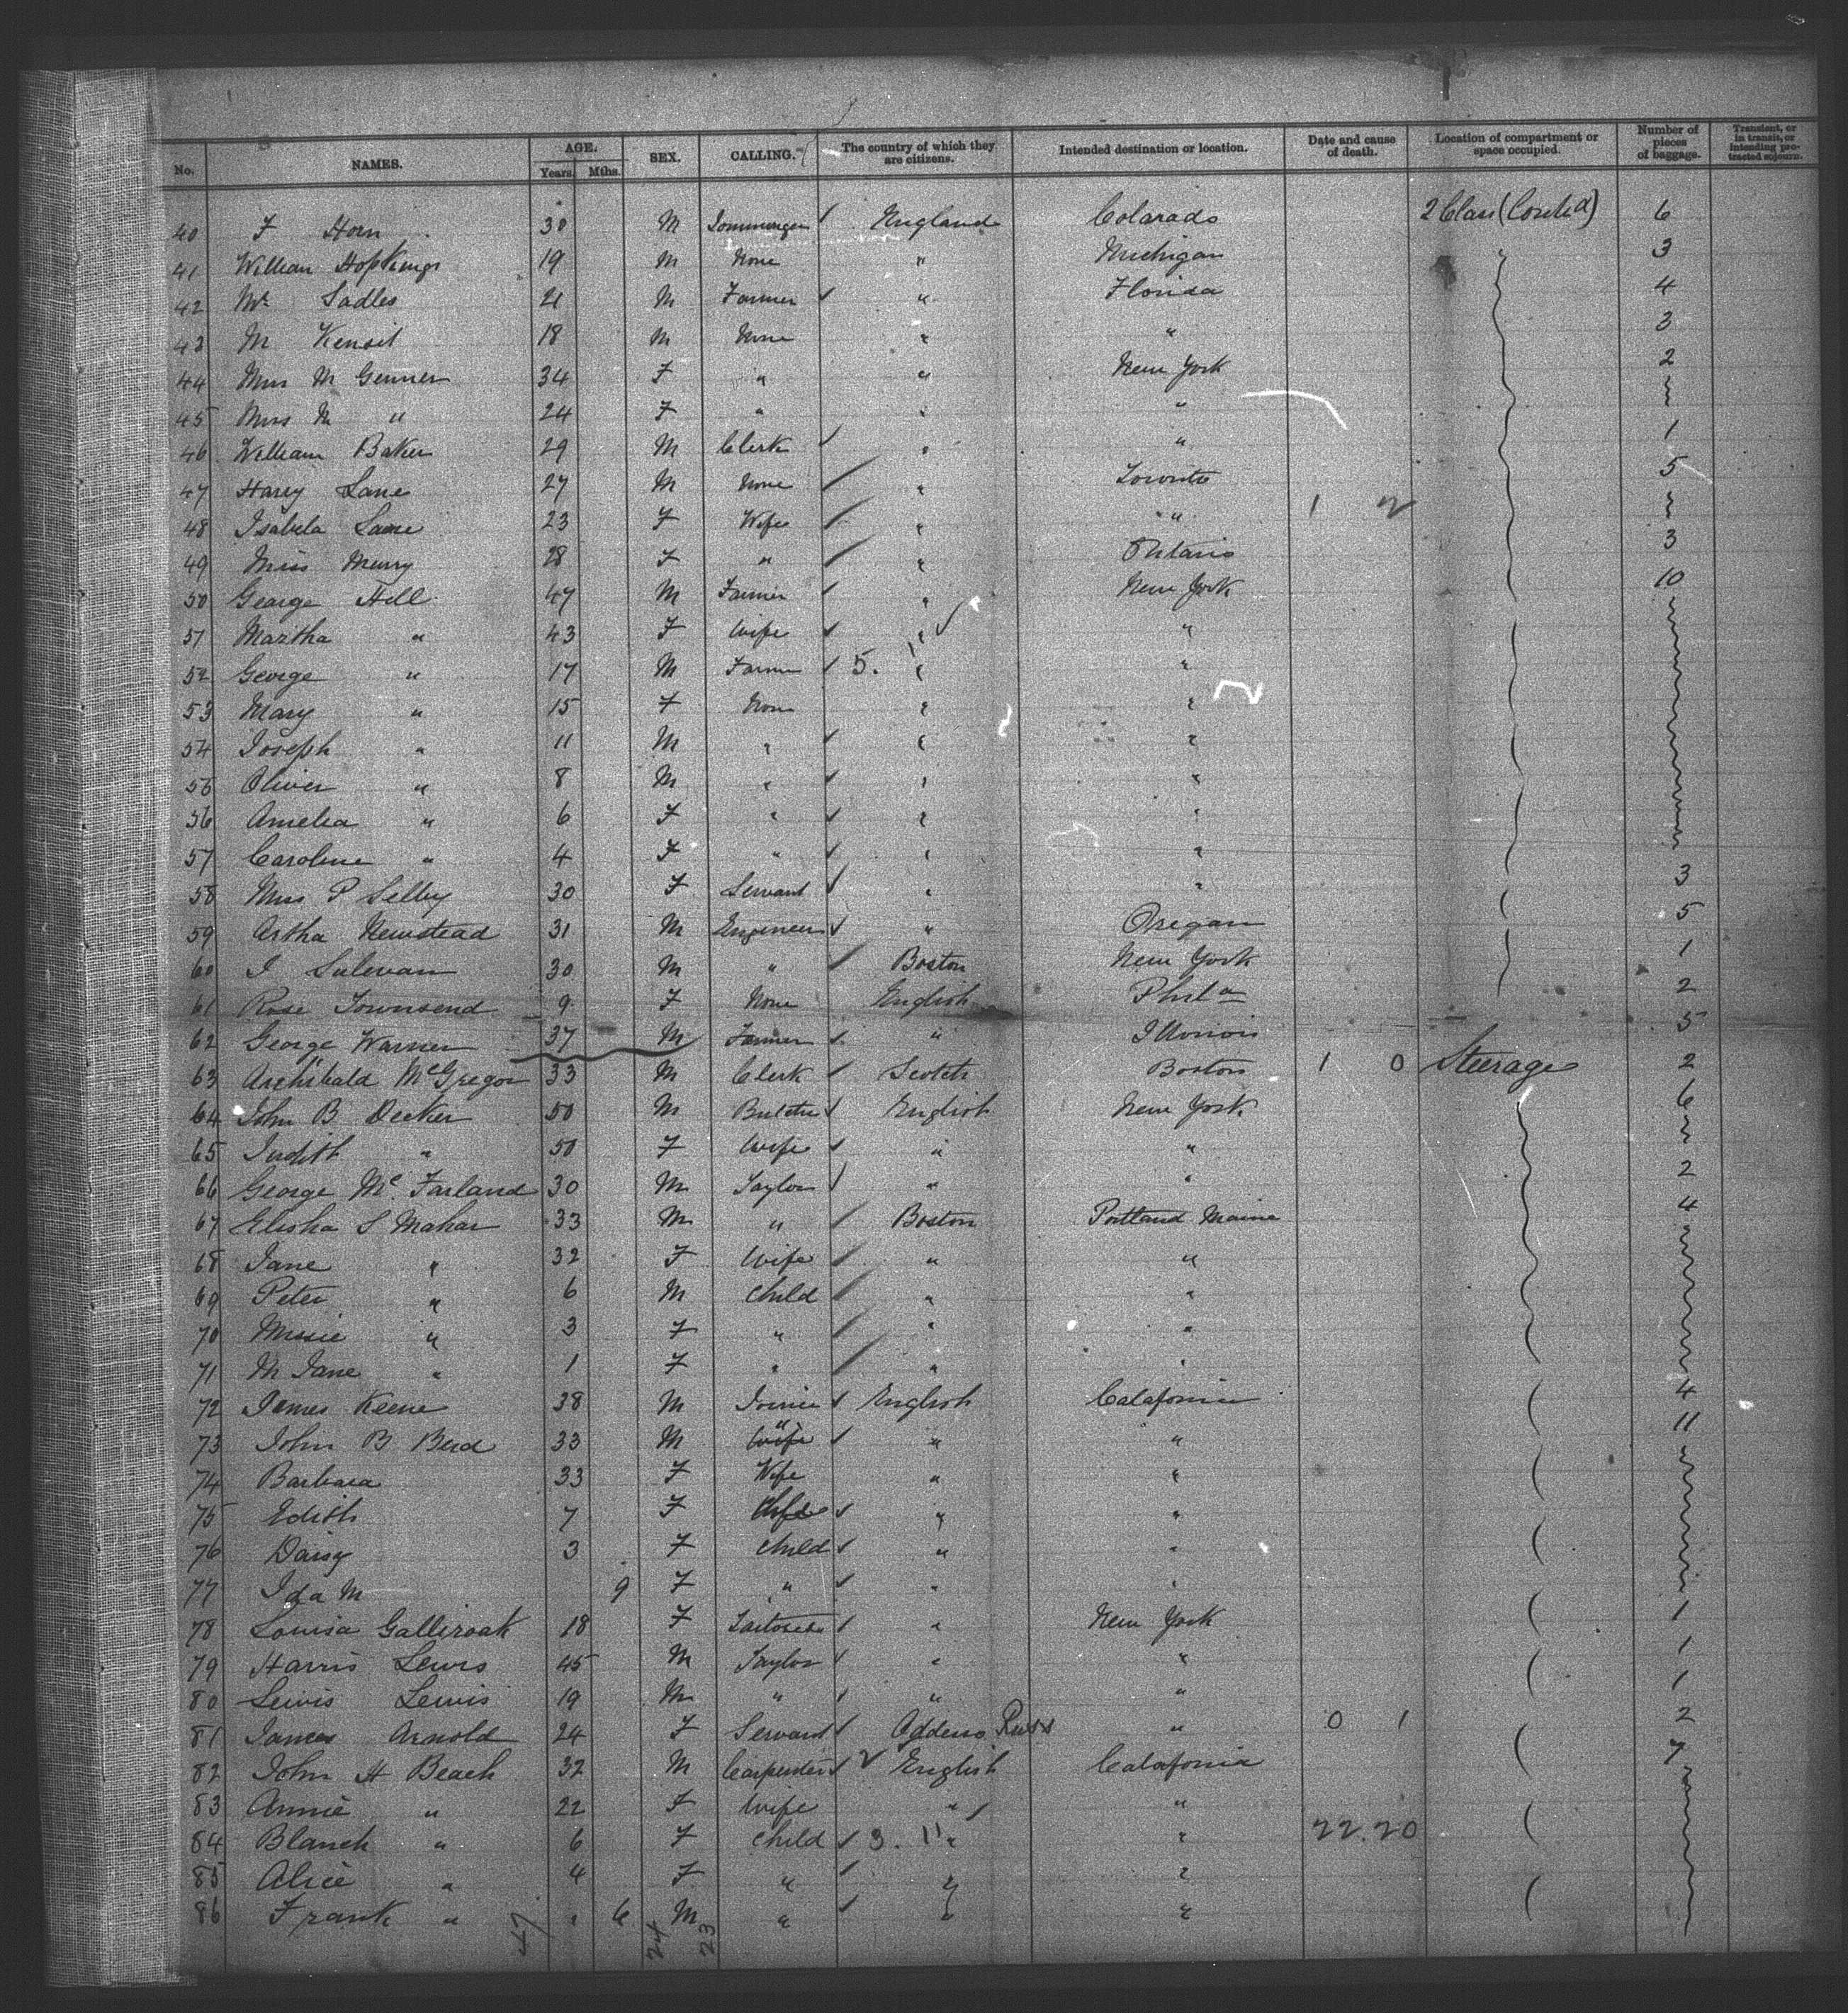 No. NAMES. AGE. Years. Mths. SEX. CALLING. The country of which they are citizens. Intended destination or location. Date and cause of death. Location of compartment or space occupied. Number of pieces of baggage. Transient, or in transit, or intending protracted sojourn.
40 F Horn 30 M England Colarado 2 Class (Contd) 6
41 William Hopkings 19 M None " Michigan 3
42 Mr Sadles 21 M Farmer " Florida 4
43 M Kensit 18 M None " " 3
44 Mrs M Genner 34 F " " New York 2
45 Miss M " 24 F " " "
46 William Baker 29 M Clerk " " 1
47 Harry Lane 27 M None " Toronto 5
48 Isabela Lane 23 F Wife " " 1 2
49 Miss Murry 28 F " " Ontario 3
50 George Hill 47 M Farmer " New York 10
51 Martha " 43 F Wife " "
52 George " 17 M Farmer 5. " "
53 Mary " 15 F None " "
54 Joseph " 11 M " " "
55 Oliver " 8 M " " "
56 Amelia " 6 F " " "
57 Caroline " 4 F " " "
58 Miss P Selby 30 F Servant " " 3
59 Artha Newstead 31 M Engineer " Oregan 5
60 J Sulevan 30 M " Boston New York 1
61 Rose Townsend 9 F None English Phila 2
62 George Warner 37 M Farmer " Illonois 5
63 Archibald McGregor 33 M Clerk Scotch Boston 1 0 Steerage 2
64 John B Decker 50 M Butcher English New York 6
65 Judith " 50 F Wife " "
66 George Mc Farland 30 M Taylor " " 2
67 Elisha S Mahar 33 M " Boston Portland Maine 4
68 Jane " 32 F Wife " "
69 Peter " 6 M Child " "
70 " 3 F " " "
71 M Jane " 1 F " " "
72 James Keene 38 M Joiner English Calafonia 4
73 John B Berd 33 M " Wife " " 11
74 Barbara 33 F Wife " "
75 Edith 7 F " "
76 Daisy 3 F Child " "
77 Ida M 9 F " " "
78 Louisa Galliroak 18 F " New York 1
79 Harris Lewis 45 M Taylor " " 1
80 Lewis Lewis 19 M " " " 1
81 Arnold 24 F Servant Russ " 0 1 2
82 John H Beach 32 M Carpenter English Calafonia 7
83 Annie " 22 F Wife " "
84 Blanch " 6 F Child 3. 11 " " 22.20
85 Alice " 4 F " " "
86 Frank " " 6 M " " "
47 24 23